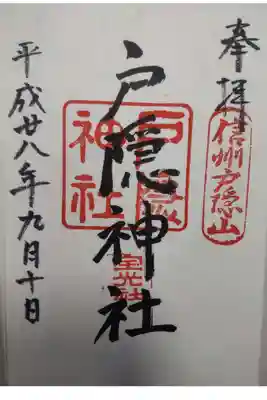 奉拝
信州戸隠山
戸隠神社
戸隠神社
宝光社
平成廿八年九月十日